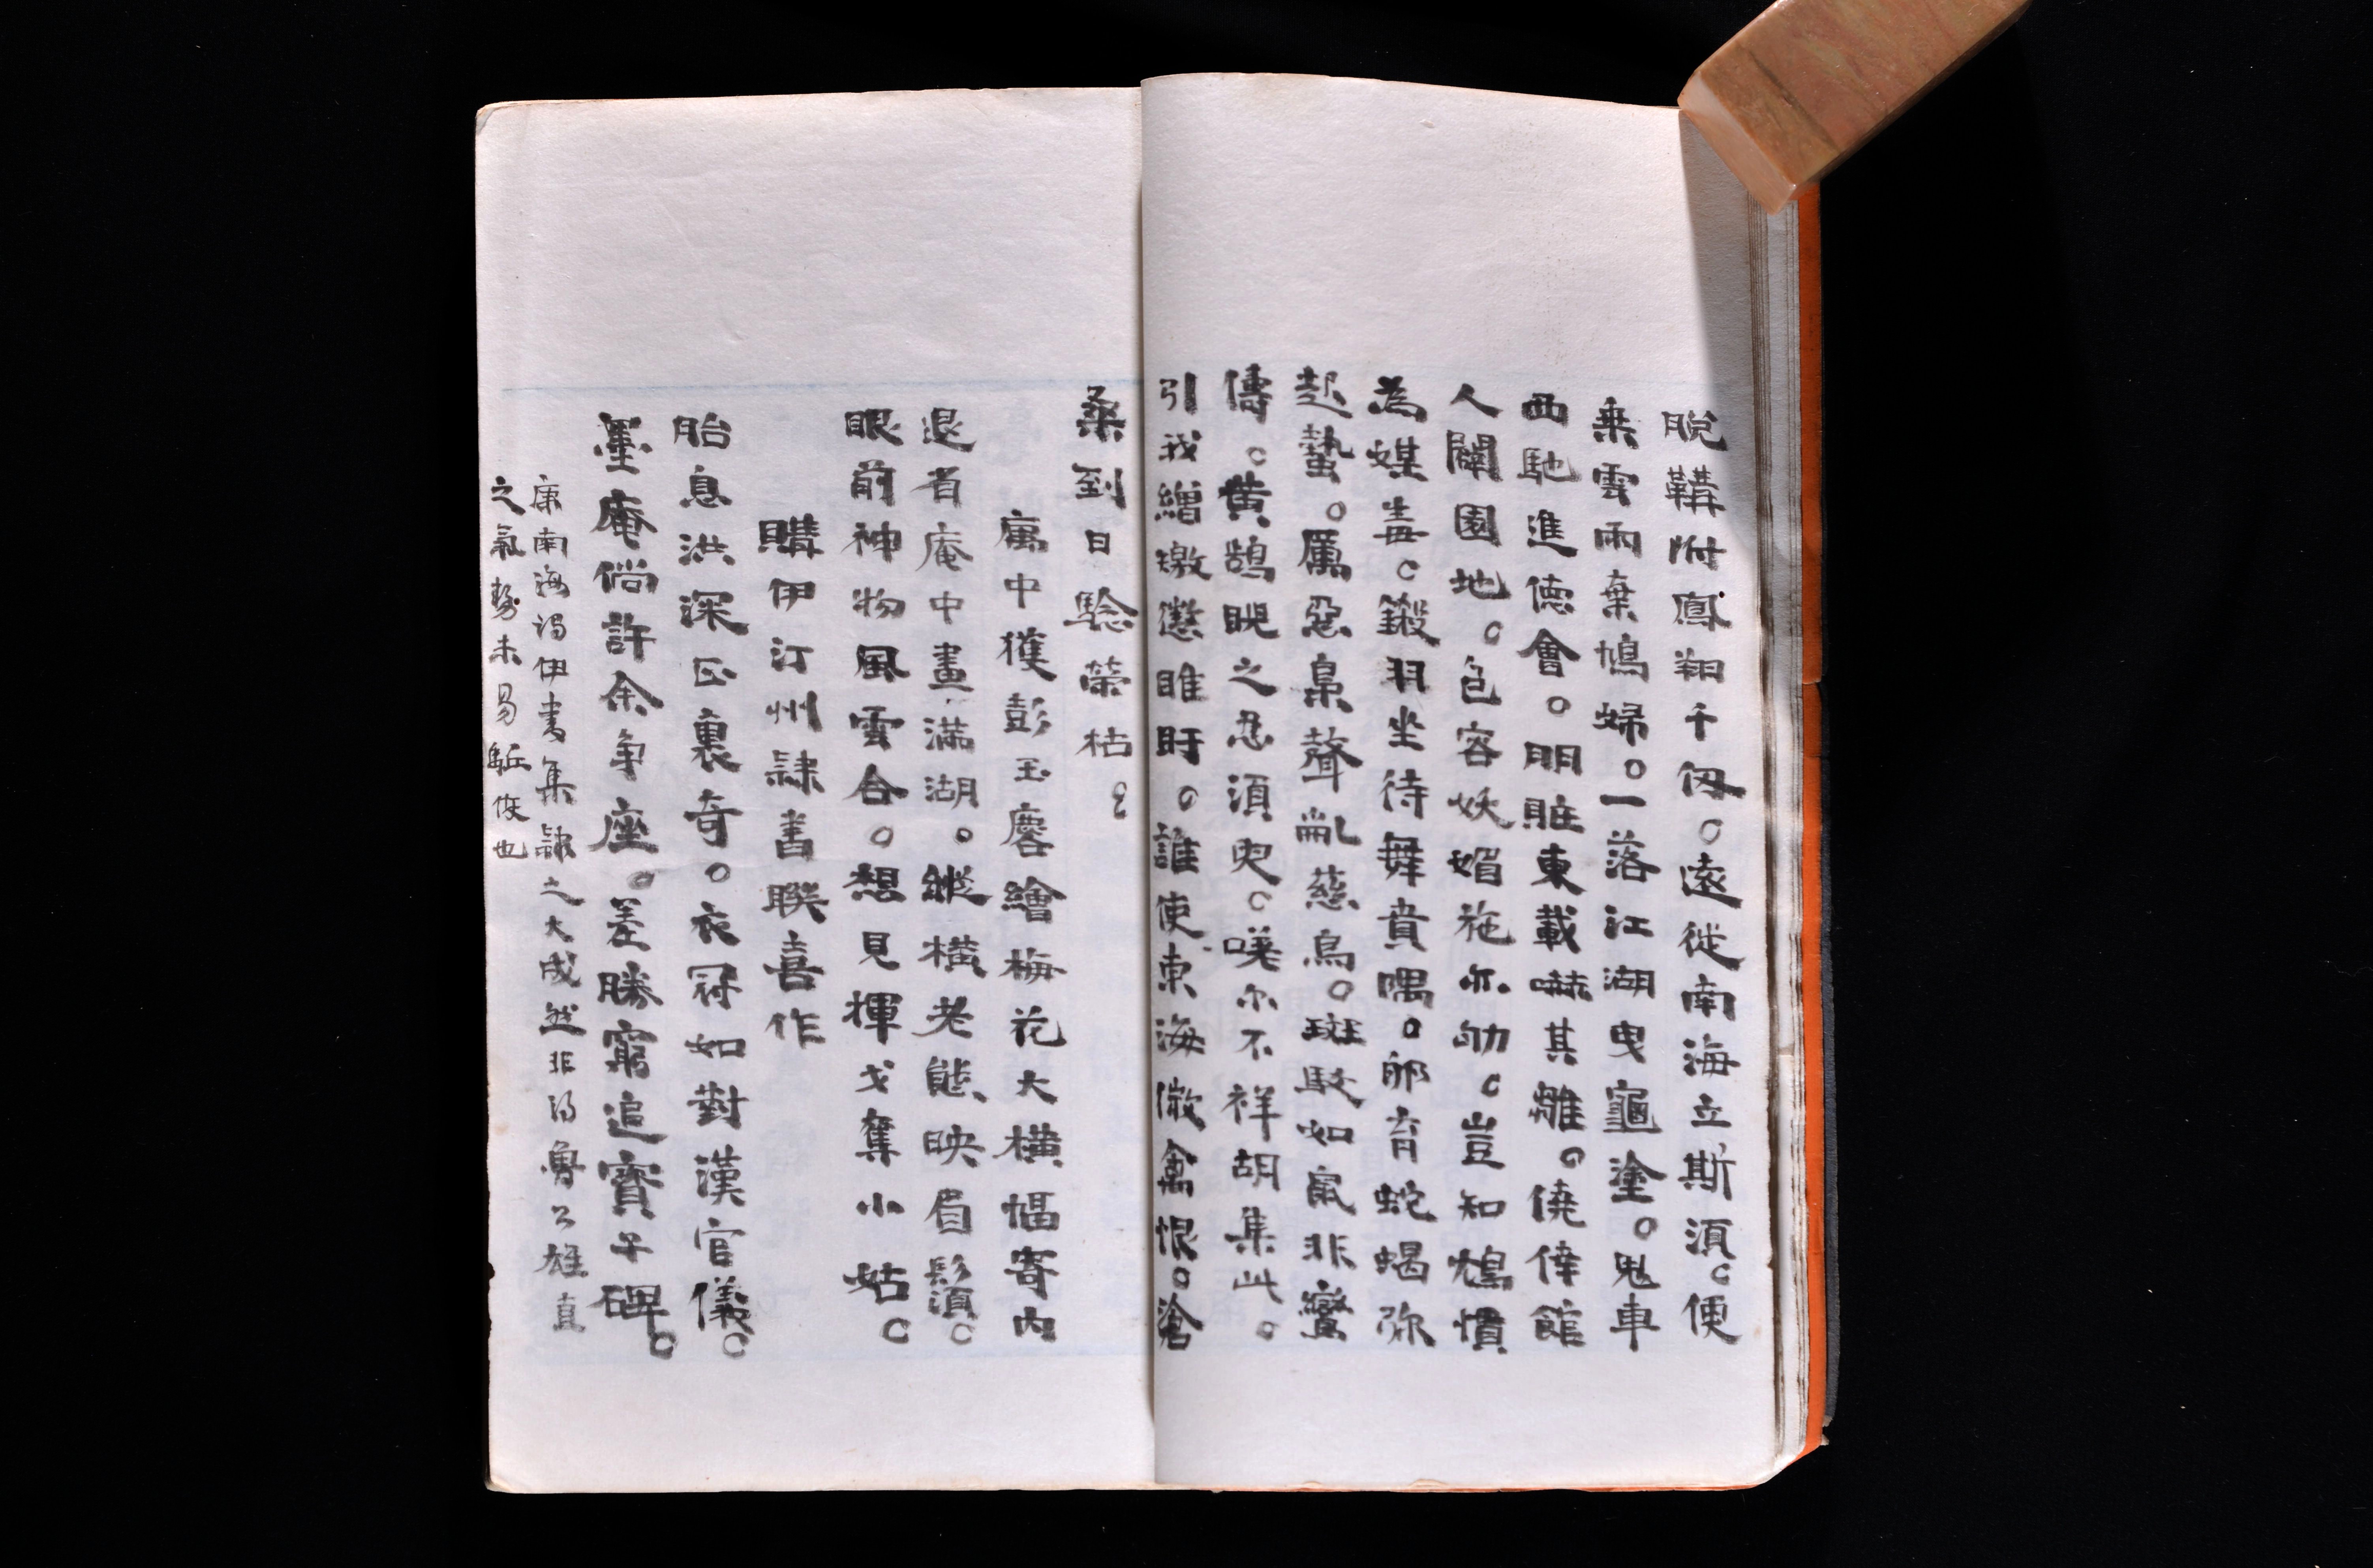 脫鞲附鳳翔千仞。遠從南海立斯須。便
乘雲雨棄鳩婦。一落江湖曳龜塗。鬼車
西馳進德會。朙賍東載嚇其雛。僥倖館
人闢園地。色容妖媚袘亦劬。豈知鴆慣
為媒毒。鎩羽坐待舞賁隅。卵育蛇蝎弥
起蟄。厲惡梟聲亂慈烏。斑駁如鼠非鸞
儔。黃鵠睨之忍須臾。嘆尓不祥胡集此。
引我繒繳懲睢盱。誰使東海微禽恨。滄
桑到日驗榮枯。
寓中獲彭玉麐繪梅花大橫幅寄內
退省庵中畫滿湖。縱橫老態映眉鬚。
眼前神物風雲合。想見揮戈奪小姑。
購伊汀州隷書聯喜作
胎息洪深正裏奇。衣冠如對漢官儀。
墨庵倘許余争座。差勝窮追寶子碑。
康南海謂伊書集隷之大成然非得魯公雄直
之氣勢未易駈使也